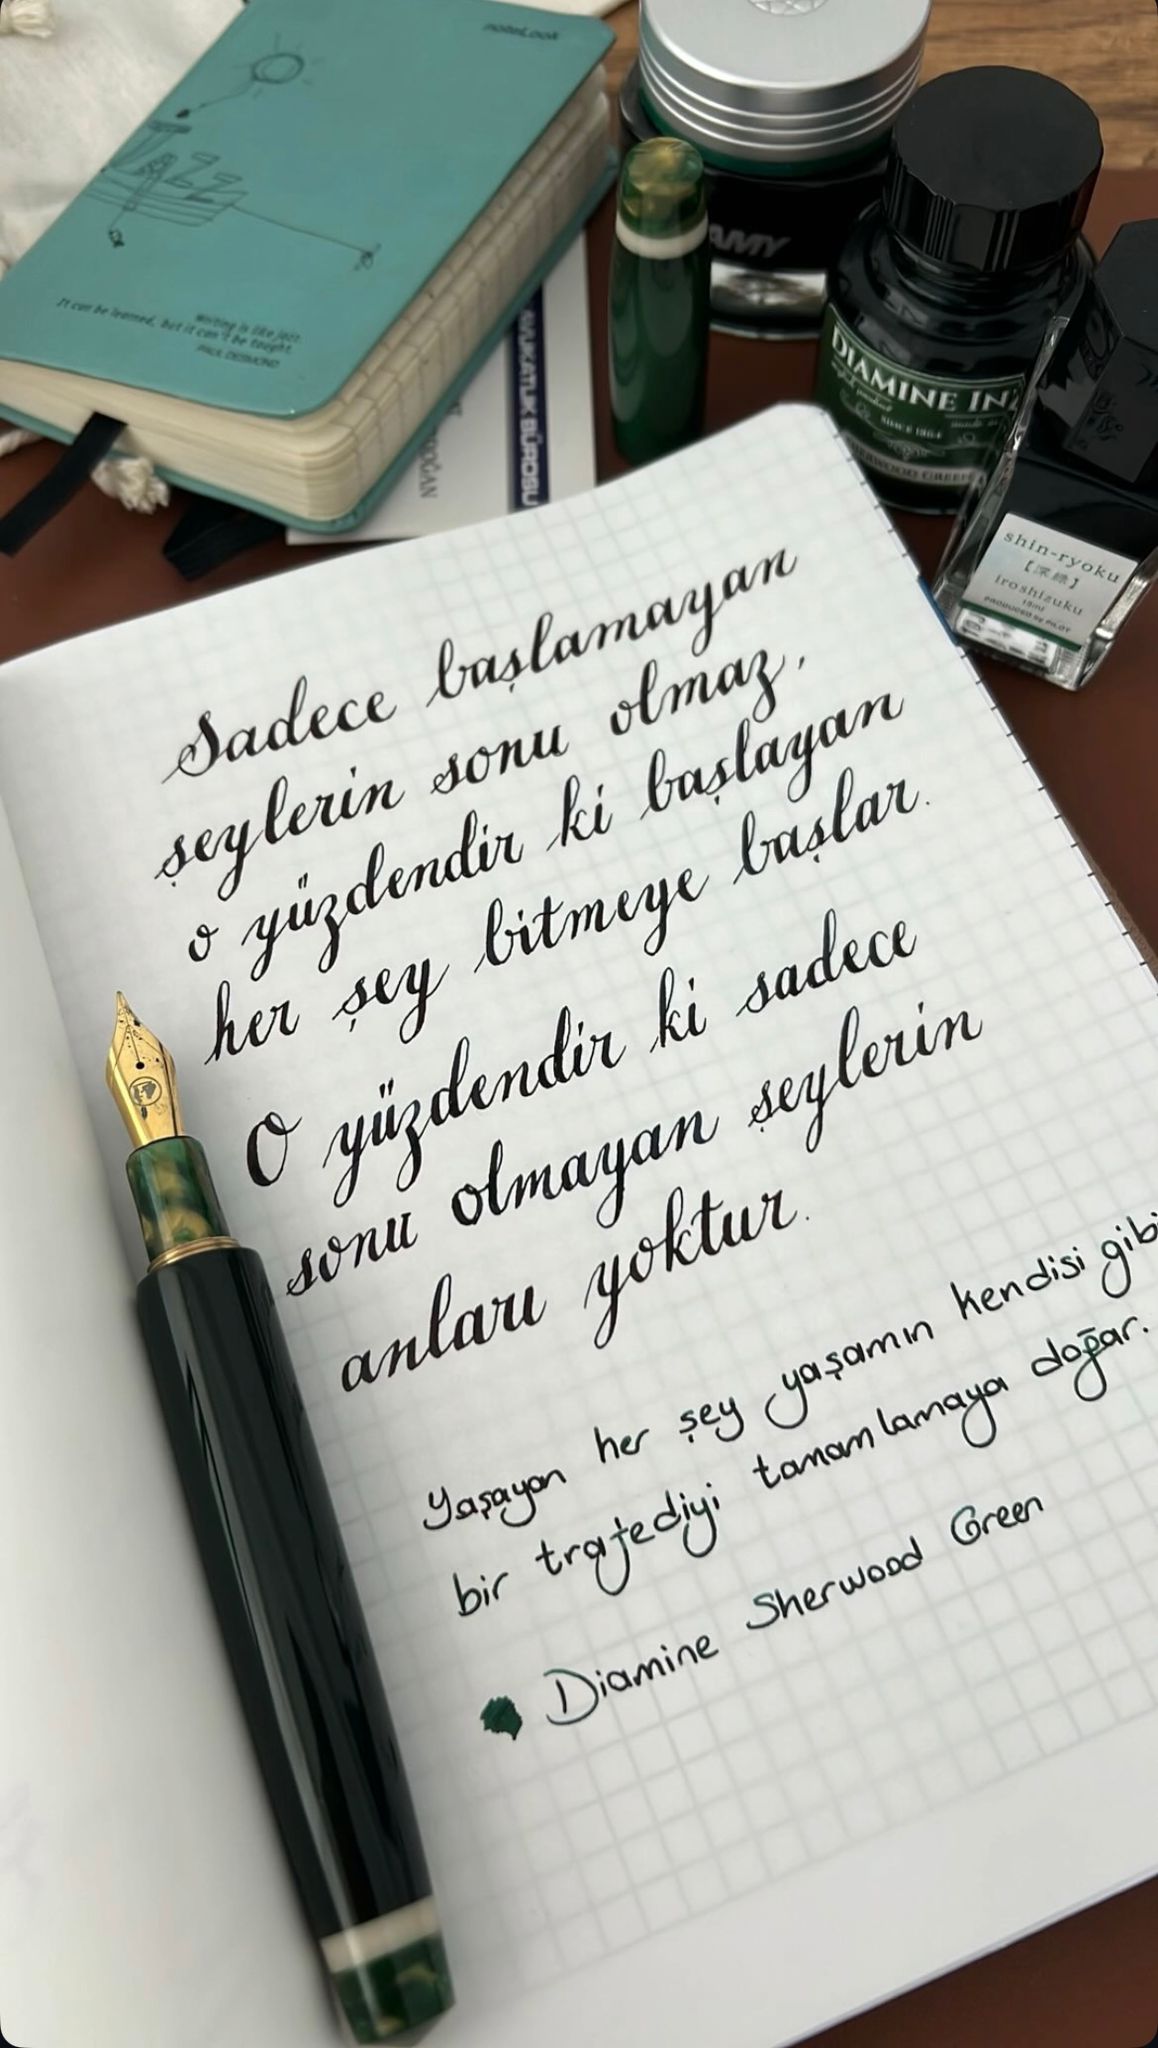 noteLook
JAZZ
Writing is like jazz.
It can be learned, but it can't be taught.
PAUL DESMOND
AVUKATLIK BÜROSU
LAMY
DIAMINE INK
SINCE 1864
SHERWOOD GREEN
shin-ryoku
【深緑】
iroshizuku
15ml
PRODUCED by PILOT
Sadece başlamayan
şeylerin sonu olmaz,
o yüzdendir ki başlayan
her şey bitmeye başlar.
O yüzdendir ki sadece
sonu olmayan şeylerin
anları yoktur.
Yaşayan her şey yaşamın kendisi gibi
bir trajediyi tamamlamaya doğar.
Diamine Sherwood Green